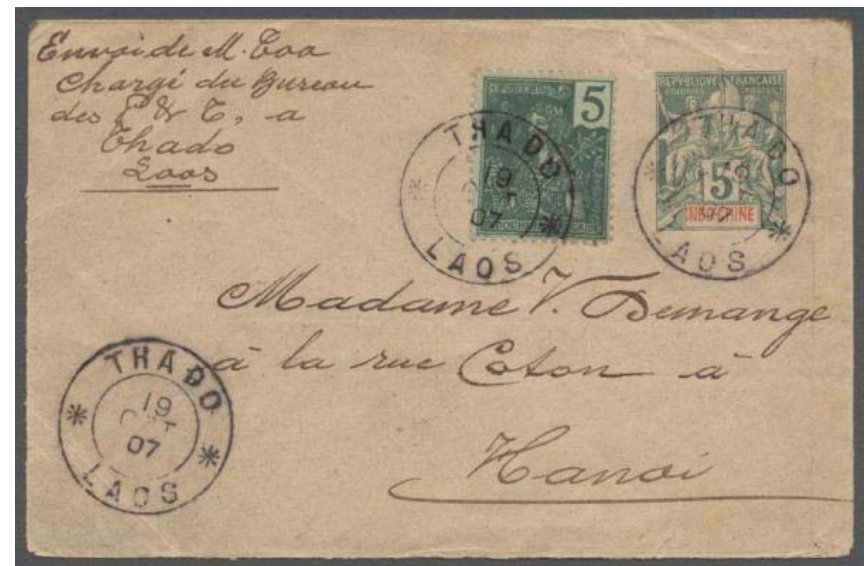 Envoi de M. Toa
Chargé du Bureau
des P & T, a
Thado
Laos
5
THADO
19
OCT
07
LAOS
REPUBLIQUE FRANCAISE
COLONIES POSTES
5
INDO-CHINE
THADO
19
07
LAOS
Madame V. Demange
à la rue Coton à
Hanoi
THADO
19
OCT
07
LAOS